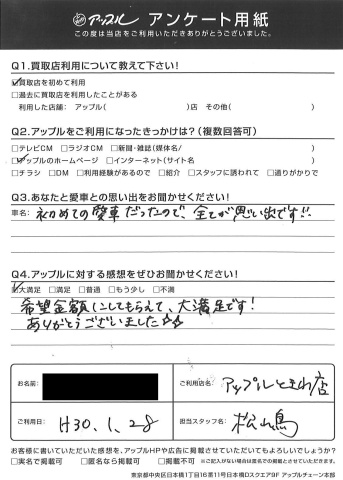 アップル アンケート用紙
この度は当店をご利用いただきありがとうございました。
Q1.買取店利用について教えて下さい!
☑買取店を初めて利用
□過去に買取を利用したことがある
利用した店舗： アップル( )店 その他( )
Q2.アップルをご利用になったきっかけは?(複数回答可)
□テレビCM □ラジオCM □新聞・雑誌(媒体名/ )
☑アップルのホームページ □インターネット(サイト名 )
□チラシ □DM □利用経験があるので □紹介 □スタッフに誘われて □通りがかりで
Q3.あなたと愛車との思い出をお聞かせください!
車名： 初めての愛車だったので、全てが思い出です!!
Q4.アップルに対する感想をぜひお聞かせください!
☑大満足 □満足 □普通 □もう少し □不満
希望金額にしてもらえて、大満足です!
ありがとうございました☆☆
お名前:
ご利用店名: アップルときわ店
ご利用日: H30.1.28
担当スタッフ名:
お客様に書いていただいた感想を、アップルHPや広告に掲載させていただいてもよろしいでしょうか?
□実名で掲載可 □匿名なら掲載可 □掲載不可 ※ご記入がない場合は匿名での掲載とさせていただきます。
東京都中央区日本橋1丁目16第11号日本橋DスクエアF9F アップルチェーン本部